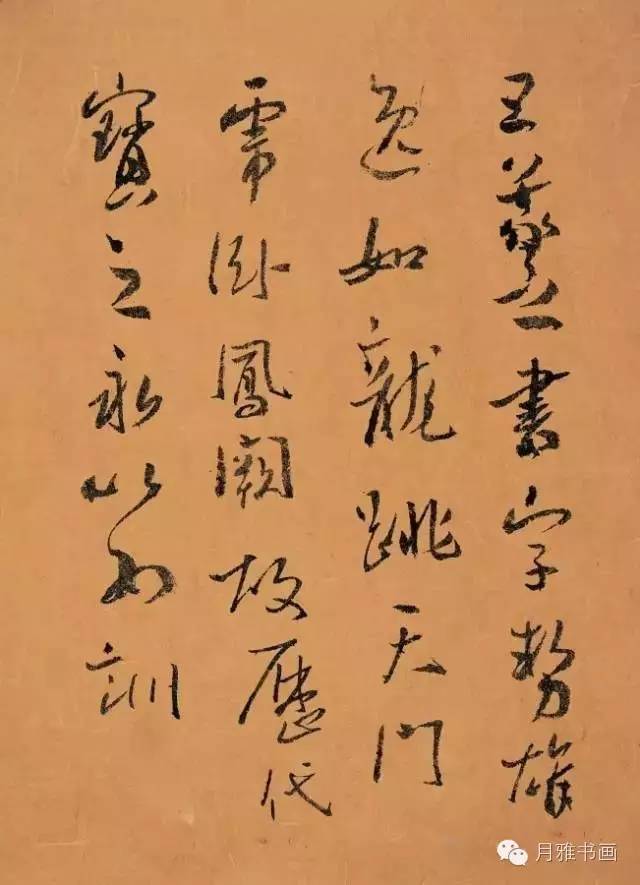 王羲之書字勢雄
逸如龍跳天門
虎臥鳳闕故歷代
寶之永以為訓
月雅书画